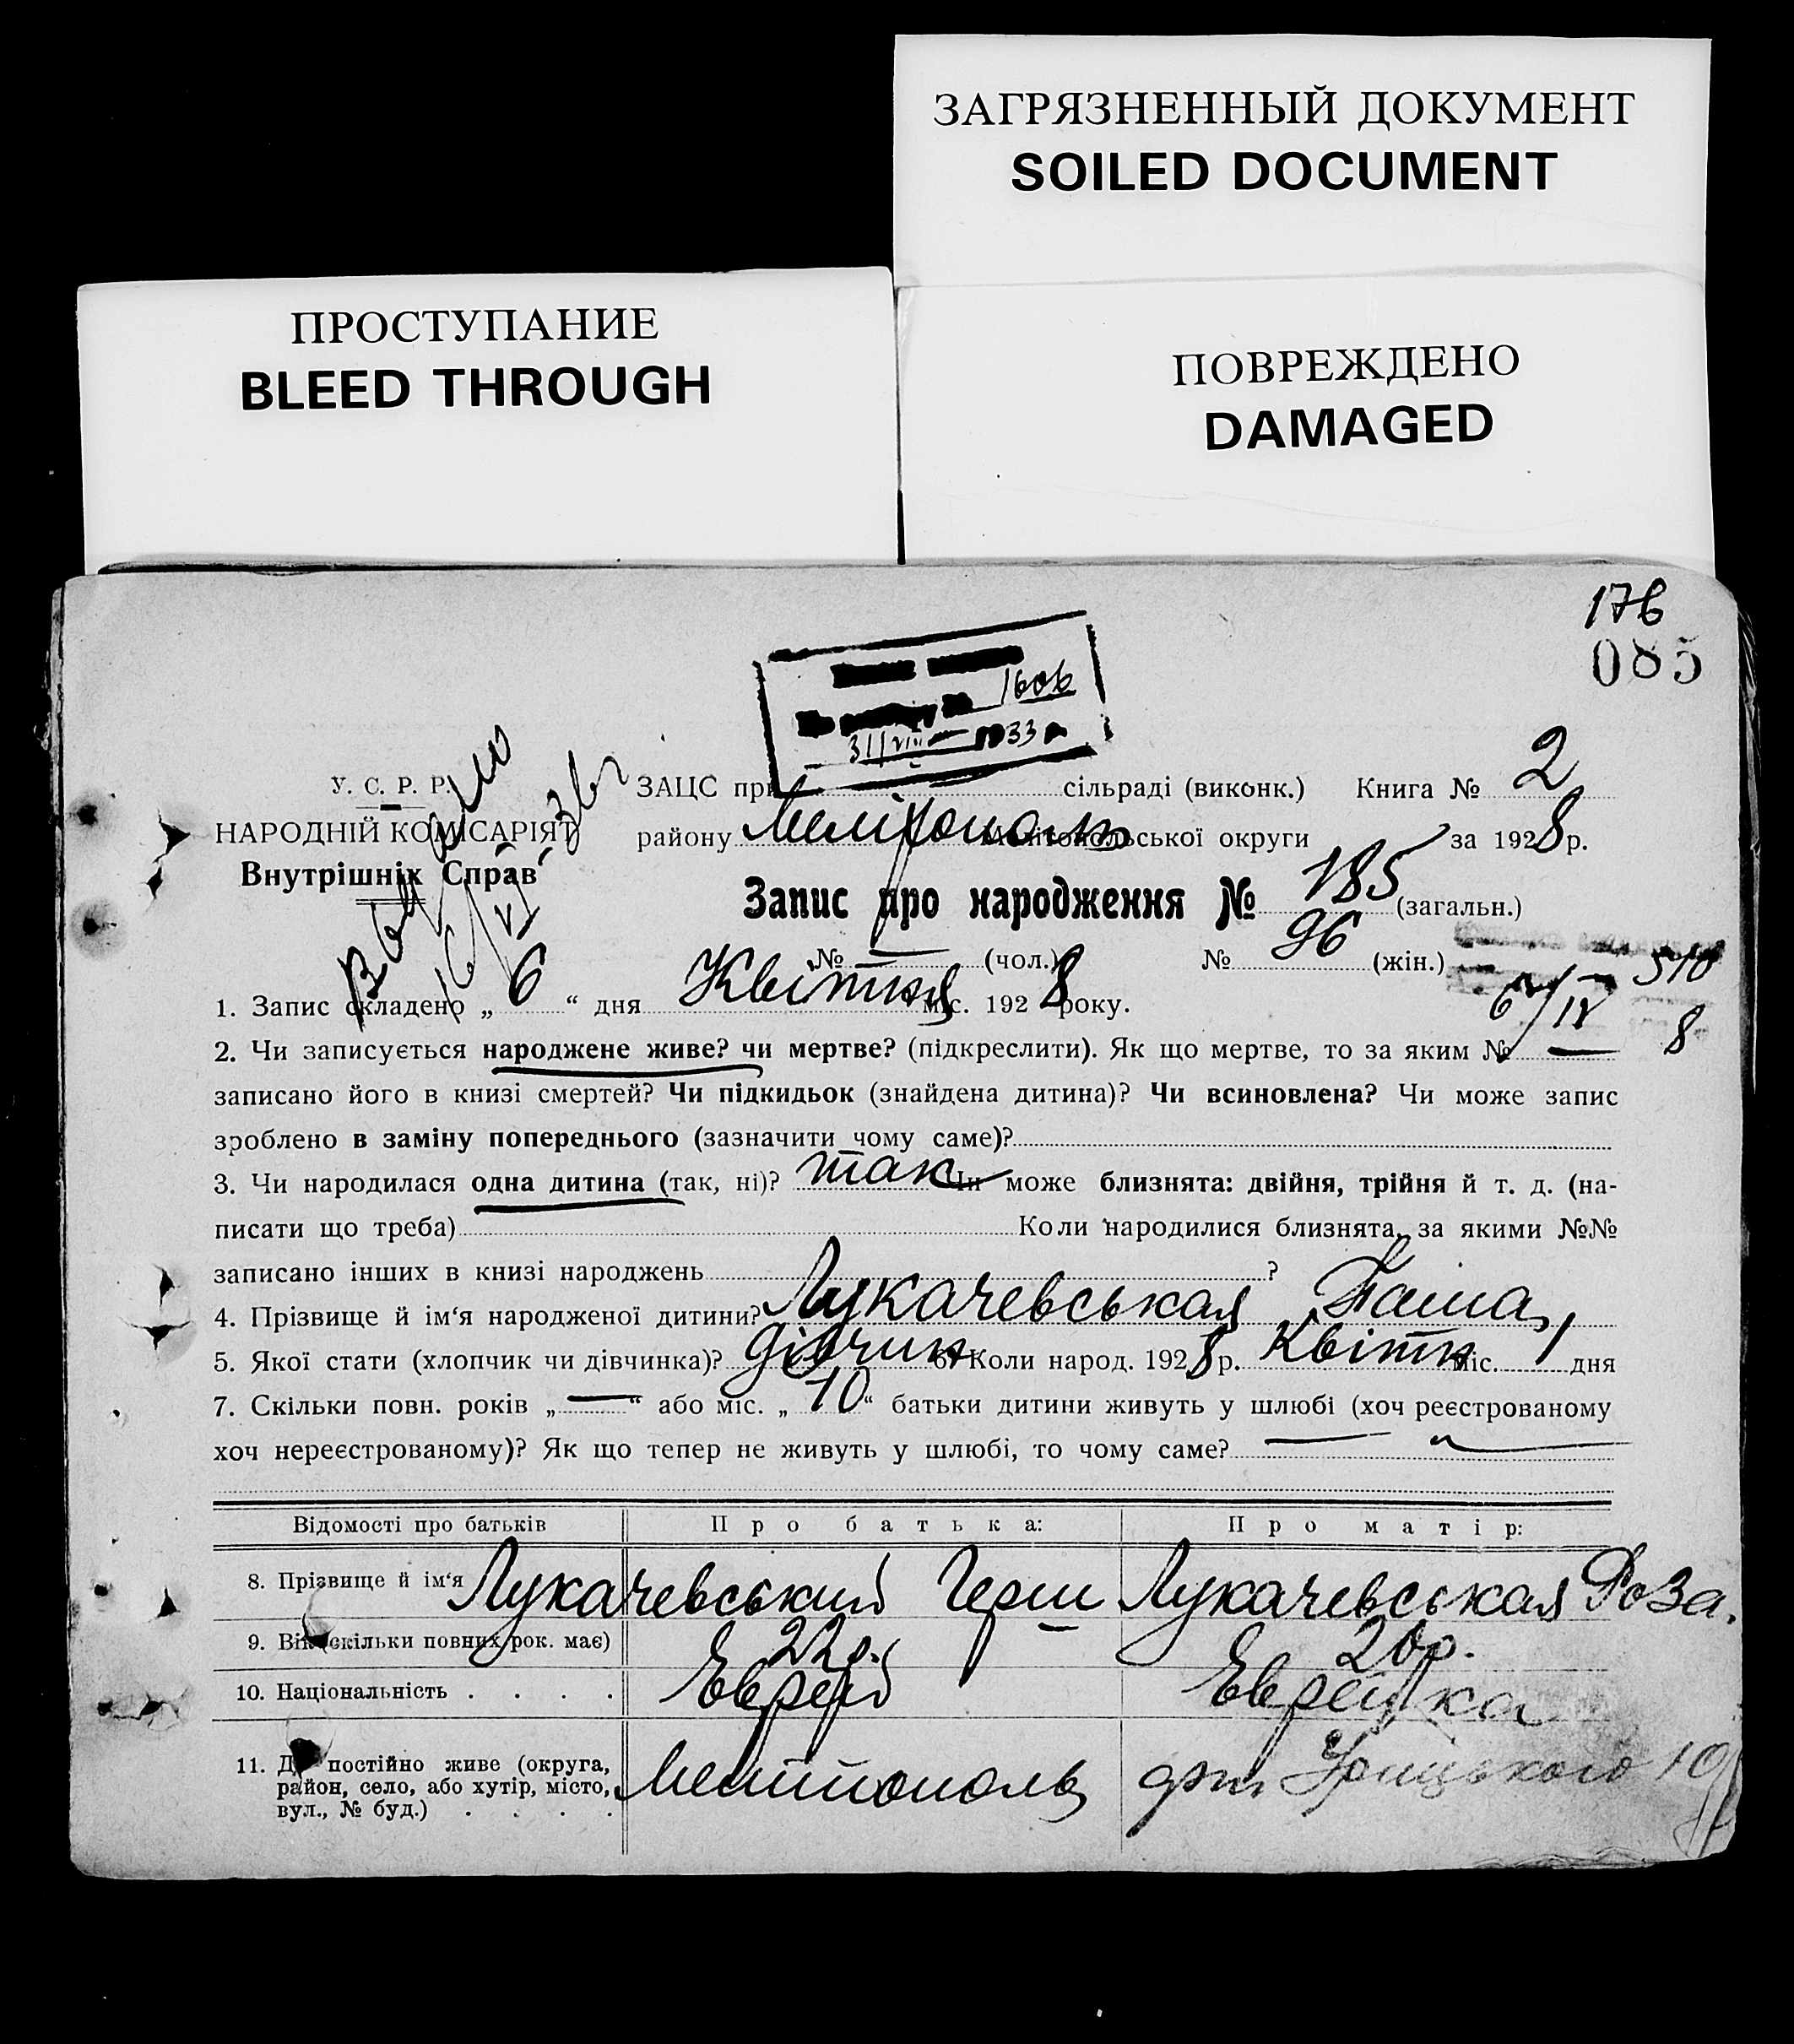 ЗАГРЯЗНЕННЫЙ ДОКУМЕНТ
SOILED DOCUMENT
ПРОСТУПАНИЕ
BLEED THROUGH
ПОВРЕЖДЕНО
DAMAGED
176
085
1606
31/VIII 1933
У. С. Р. Р.
НАРОДНІЙ КОМІСАРІЯТ
Внутрішніх Справ
ЗАЦС при сільраді (виконк.) Книга № 2
району Мелітополь Мелітопольської округи за 1928 р.
Запис про народження № 185 (загальн.)
№ — (чол.) № 96 (жін.)
1. Запис складено „ 6 “ дня Квітня міс. 1928 року.
6/IV 8
2. Чи записується народжене живе? чи мертве? (підкреслити). Як що мертве, то за яким № —
записано його в книзі смертей? Чи підкидьок (знайдена дитина)? Чи всиновлена? Чи може запис
зроблено в заміну попереднього (зазначити чому саме)?
3. Чи народилася одна дитина (так, ні)? так Чи може близнята: двійня, трійня й т. д. (на-
писати що треба) Коли народилися близнята, за якими №№
записано інших в книзі народжень ?
4. Прізвище й ім‘я народженої дитини? Лукачевськая
5. Якої стати (хлопчик чи дівчинка)? дівчин 6. Коли народ. 1928 р. Квітн міс. 1 дня
7. Скільки повн. років „ — “ або міс. „ 10 “ батьки дитини живуть у шлюбі (хоч реєстрованому
хоч нереєстрованому)? Як що тепер не живуть у шлюбі, то чому саме? —
Відомості про батьків Про батька: Про матір:
8. Прізвище й ім‘я Лукачевський Герш Лукачевськая Роза.
9. Вік (скільки повних рок. має) 22р. 20р.
10. Національність . . . . Еврей Еврейка
11. Де постійно живе (округа,
район, село, або хутір, місто,
вул., № буд.) . . . . Мелітополь Урицького 10